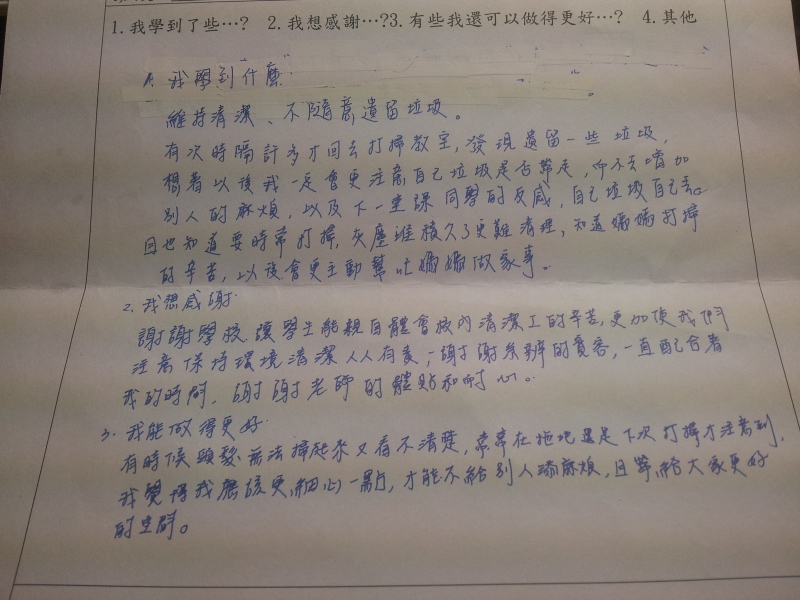 1.我學到了些…? 2.我想感謝…?3.有些我還可以做得更好…? 4.其他
1. 我學到什麼
維持清潔、不隨意遺留垃圾。
有次時隔許多才回去打掃教室,發現遺留一些垃圾,
想著以後我一定會更注意自己垃圾是否帶走,而不去增加
別人的麻煩,以及下一堂課同學的反感,自己垃圾自己丟。
且也知道要時常打掃,灰塵堆積久了更難清理,知道媽媽打掃
的辛苦,以後會更主動幫忙媽媽做家事。
2. 我想感謝
謝謝學校讓學生能親自體會校內清潔工的辛苦,更加使我們
注意保持環境清潔人人有責;謝謝系辦的寬容,一直配合著
我的時間,謝謝老師的體貼和耐心。
3. 我能做得更好
有時候頭髮無法掃起來又看不清楚,常常在拖地還是下次打掃才注意到,
我覺得我應該更細心一點,才能不給別人添麻煩,且帶給大家更好
的空間。